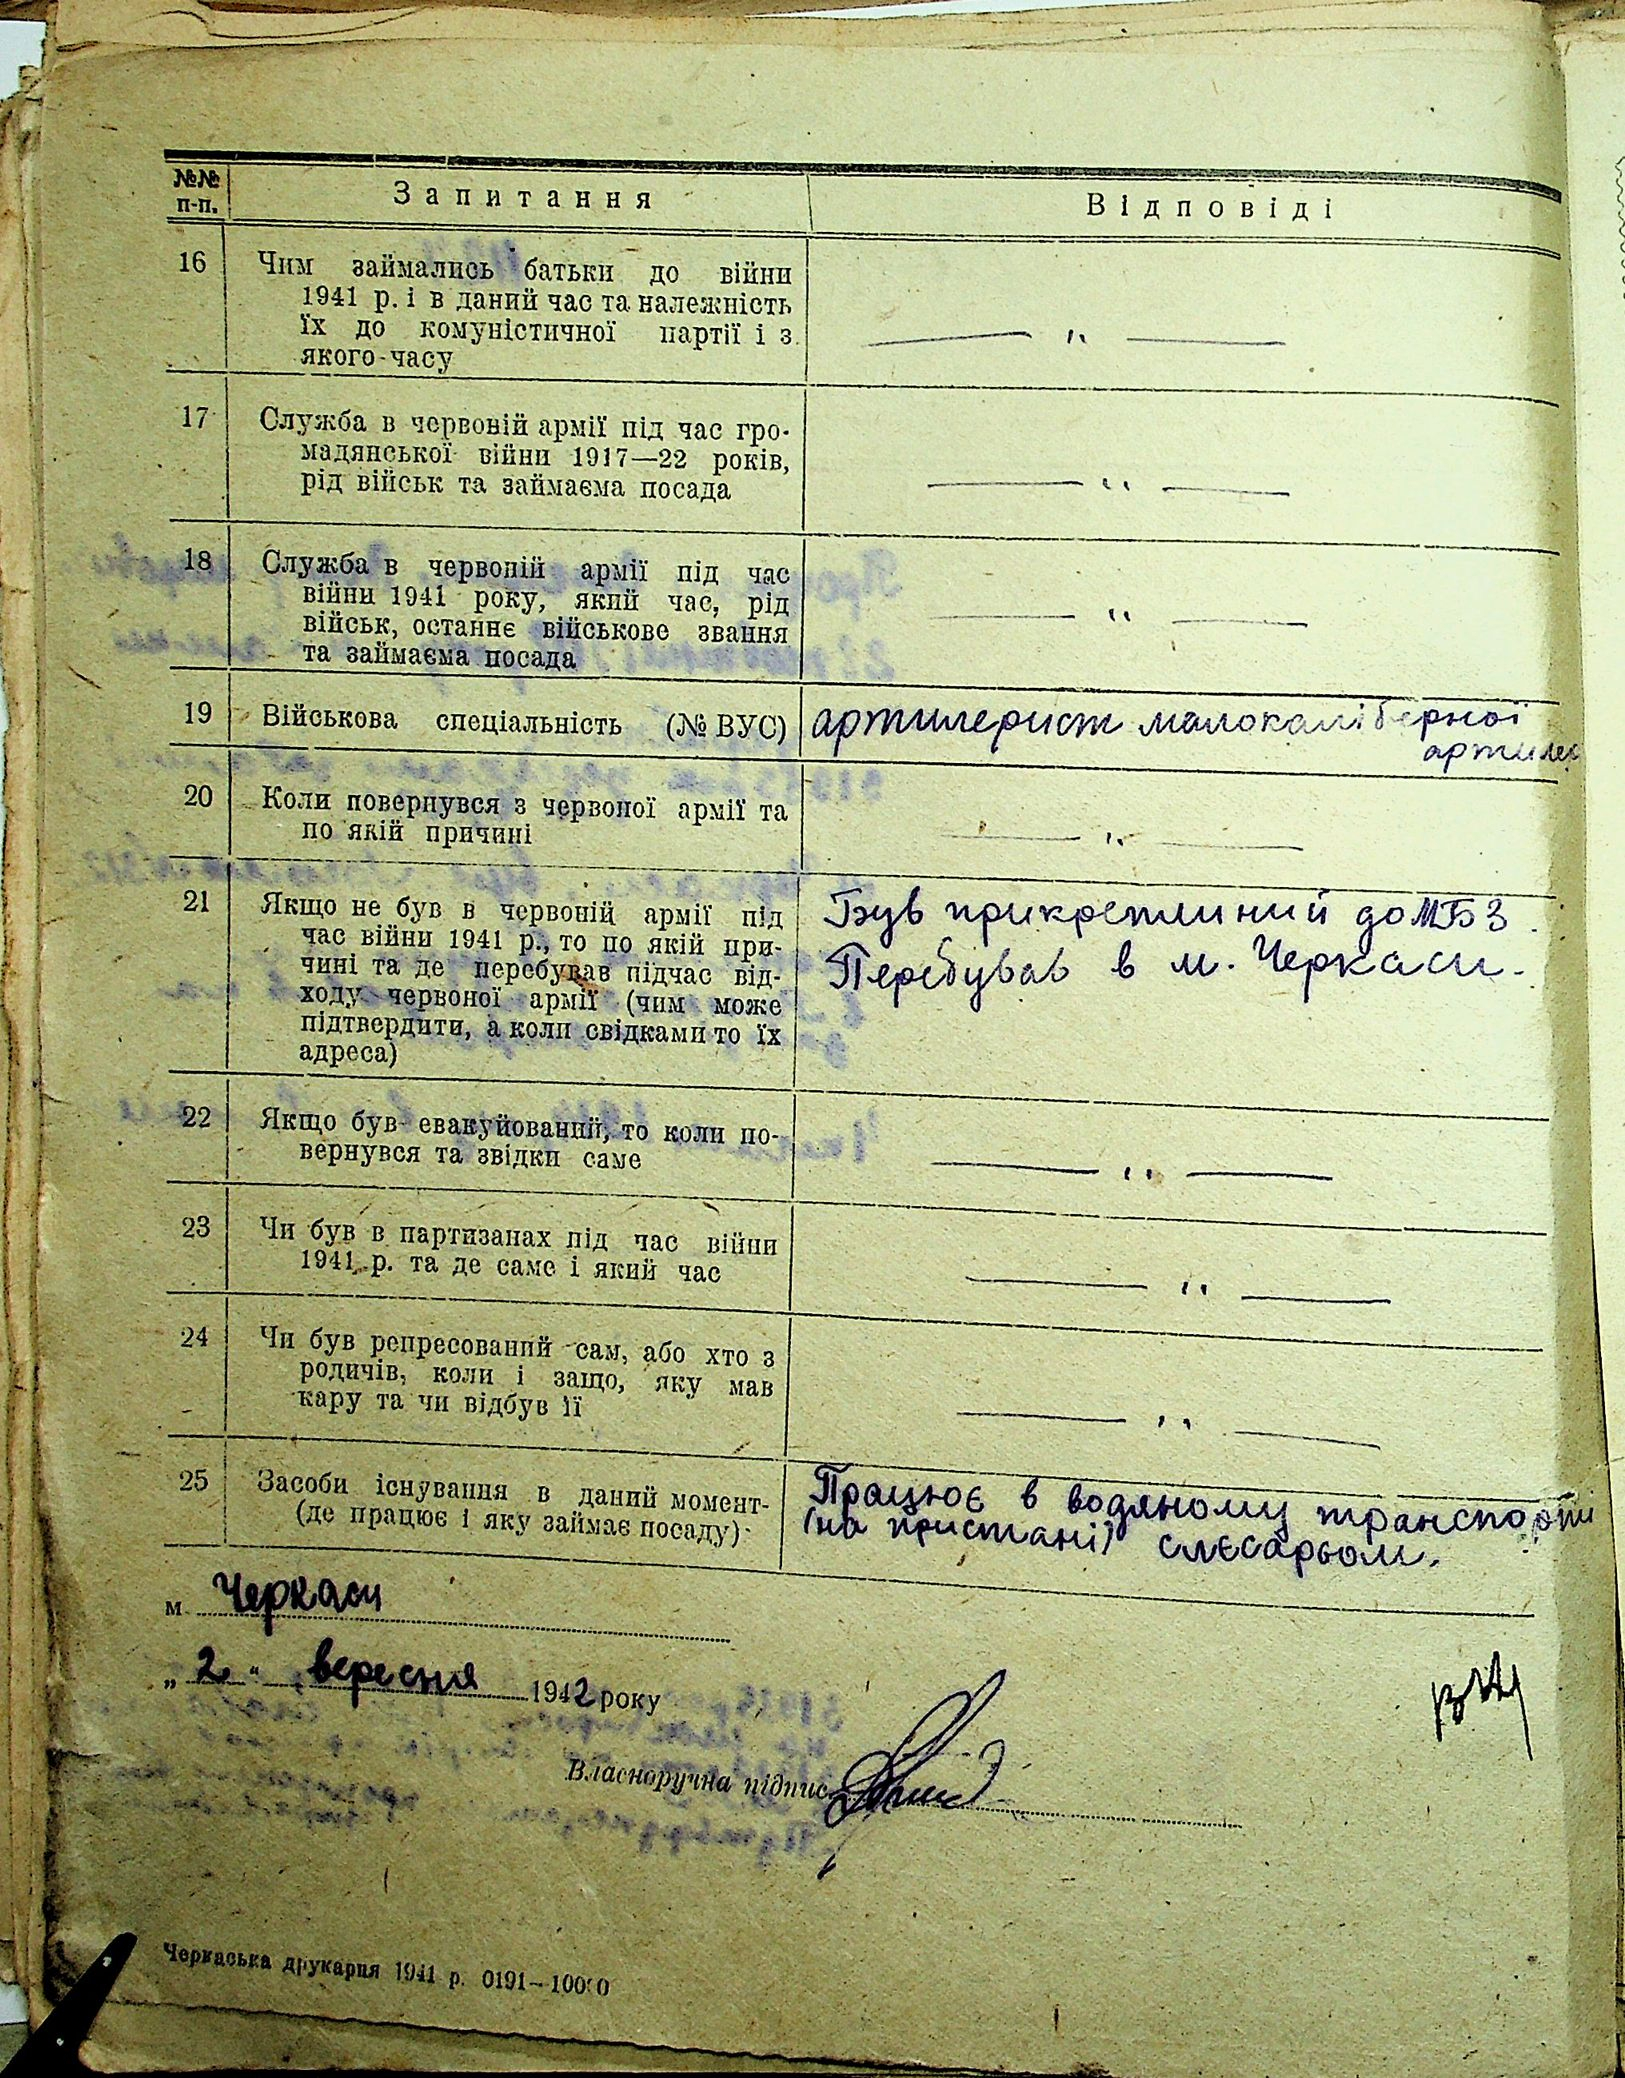 №№ п-п. Запитання Відповіді
16 Чим займались батьки до війни
1941 р. і в даний час та належність
їх до комуністичної партії і з
якого-часу
— „ —
17 Служба в червоній армії під час гро-
мадянської війни 1917—22 років,
рід військ та займаєма посада
— „ —
18 Служба в червоній армії під час
війни 1941 року, який час, рід
військ, останнє військове звання
та займаєма посада
— „ —
19 Військова спеціальність (№ ВУС)
артилерист малокаліберної
артилер
20 Коли повернувся з червоної армії та
по якій причині
— „ —
21 Якщо не був в червоній армії під
час війни 1941 р., то по якій при-
чині та де перебував підчас від-
ходу червоної армії (чим може
підтвердити, а коли свідками то їх
адреса)
Був прикреплиний до МБЗ.
Перебував в м. Черкаси.
22 Якщо був евакуйований, то коли по-
вернувся та звідки саме
— „ —
23 Чи був в партизанах під час війни
1941 р. та де саме і який час
— „ —
24 Чи був репресований сам, або хто з
родичів, коли і защо, яку мав
кару та чи відбув її
— „ —
25 Засоби існування в даний момент-
(де працює і яку займає посаду)
Працює в водяному транспорті
(на пристані) слєсарьом.
м Черкаси
„ 2 " вересня 1942 року
Власноручна підпис
Черкаська друкарня 1941 р. 0191—10000